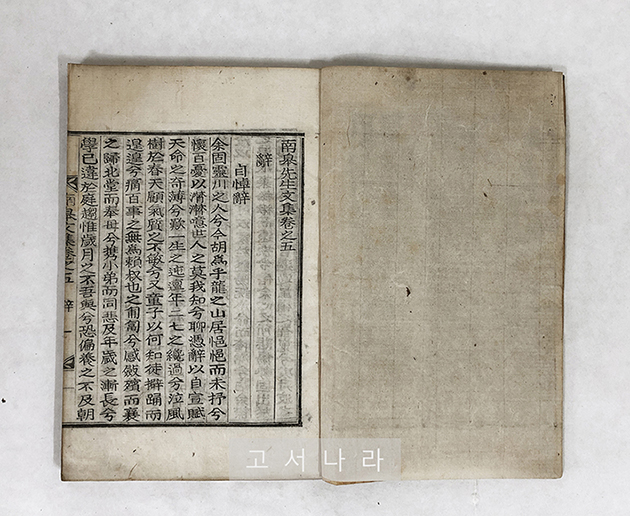 南皐先生文集卷之五
辭
自悼辭
余固靈川之人兮今胡爲乎龍之山居悒悒而未抒兮
懷百憂以潸潸噫世人之莫我知兮聊憑辭以自宣賦
天命之奇薄兮歎一生之迍邅年二七之纔過兮泣風
樹於春天顧氣質之不敏兮又童子以何知徒擗踊而
遑遑兮痛百事之無爲賴叔也之匍匐兮感斂殯而襄
之歸北堂而奉母兮携小弟而同悲及年歲之漸長兮
學已違於庭趨惟歲月之不吾與兮恐偏養之不及朝
南皐文集卷之五 辭 一
고서나라